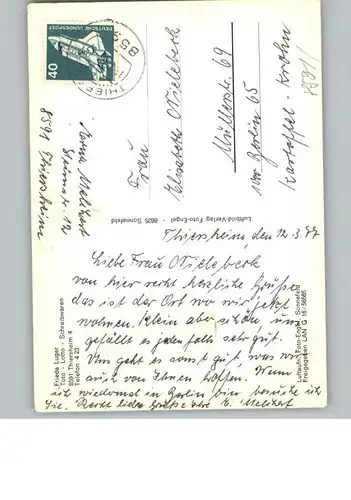 DEUTSCHE BUNDESPOST
40
85
THIER
Anna Melchert
Steinstr. 12
8591 Thiersheim
Frau
Elisabeth
Müllerstr. 69
1000 Berlin 65
Kartoffel-Krohn
8591/
Luftbild-Verlag Foto-Engel · 8625 Sonnefeld
Thiersheim, den 12.3.77
Liebe Frau
von hier recht herzliche Grüße
das ist der Ort wo wir jetzt
wohnen. Klein aber schön uns
gefällt es jedenfalls sehr gut.
Uns geht es sonst gut, was wir
auch von Ihnen hoffen. Wenn
ich wiedermal in Berlin bin besuche ich
Sie. Recht liebe Grüße
Frieda Luger
Toto - Lotto - Schreibwaren
8591 Thiersheim 4
Telefon 4 23
Luftaufn. Foto-Engel, Sonnefeld
Freigegeben LAN G 16 / 5665